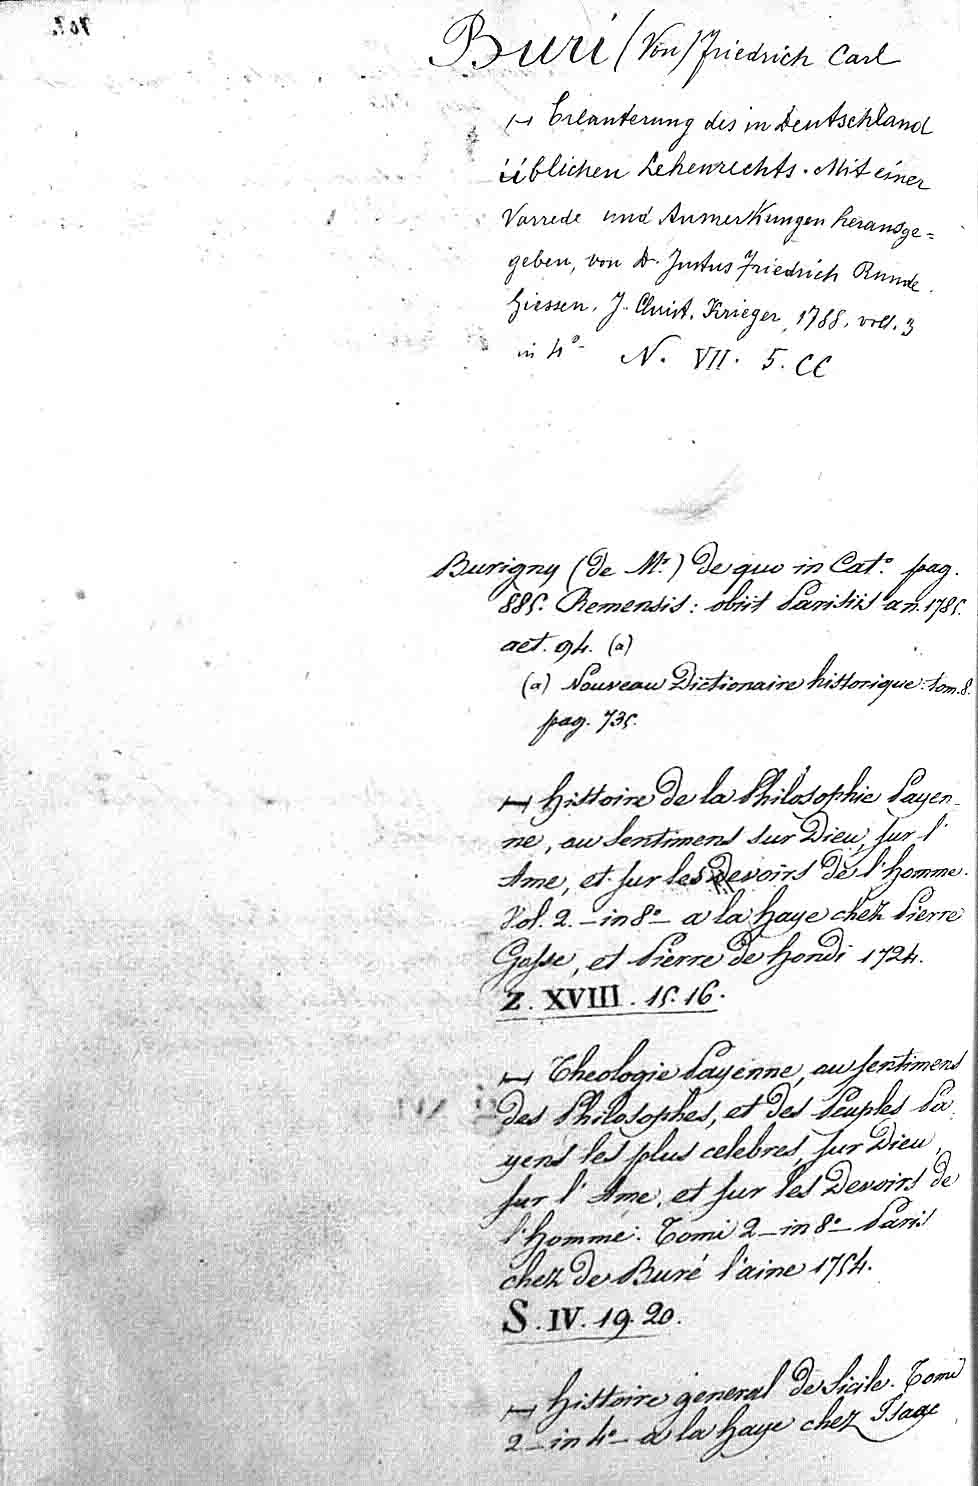 Buri (Von) Friedrich Carl
⊢ Erlanterung des in Deutschland
üblichen Lehenrechts. Mit einer
Vorrede und Anmerkungen herausge=
geben, von Dr. Justus Friedrich Runde.
Giessen. J. Christ. Krieger, 1788. voll. 3
in 4º- N. VII. 5. CC
Burigny (de Mr.) de quo in Cat.º pag.
885. Remensis: obiit Parisiis an. 1785.
aet. 94. (a)
(a) Nouveau Dictionaire historique: tom. 8.
pag. 735.
⊢ Histoire de la Philosophie Payen-
ne, ou sentimens sur Dieu, sur l'
Ame, et sur les Devoirs de l'homme.
Vol. 2. - in 8º - a la haye chez Pierre
Gosse, et Pierre de hondi 1724.
Z. XVIII. 15. 16.
⊢ Theologie Payenne, ou sentimens
des Philosophes, et des Peuples Pa-
yens les plus celebres, sur Dieu,
sur l'Ame, et sur les Devoirs de
l'homme: Tomi 2 - in 8º - Paris
chez de Buré l'aine 1754.
S. IV. 19. 20.
⊢ histoire general de Sicile. Tomi
2 - in 4º - a la haye chez Isaac